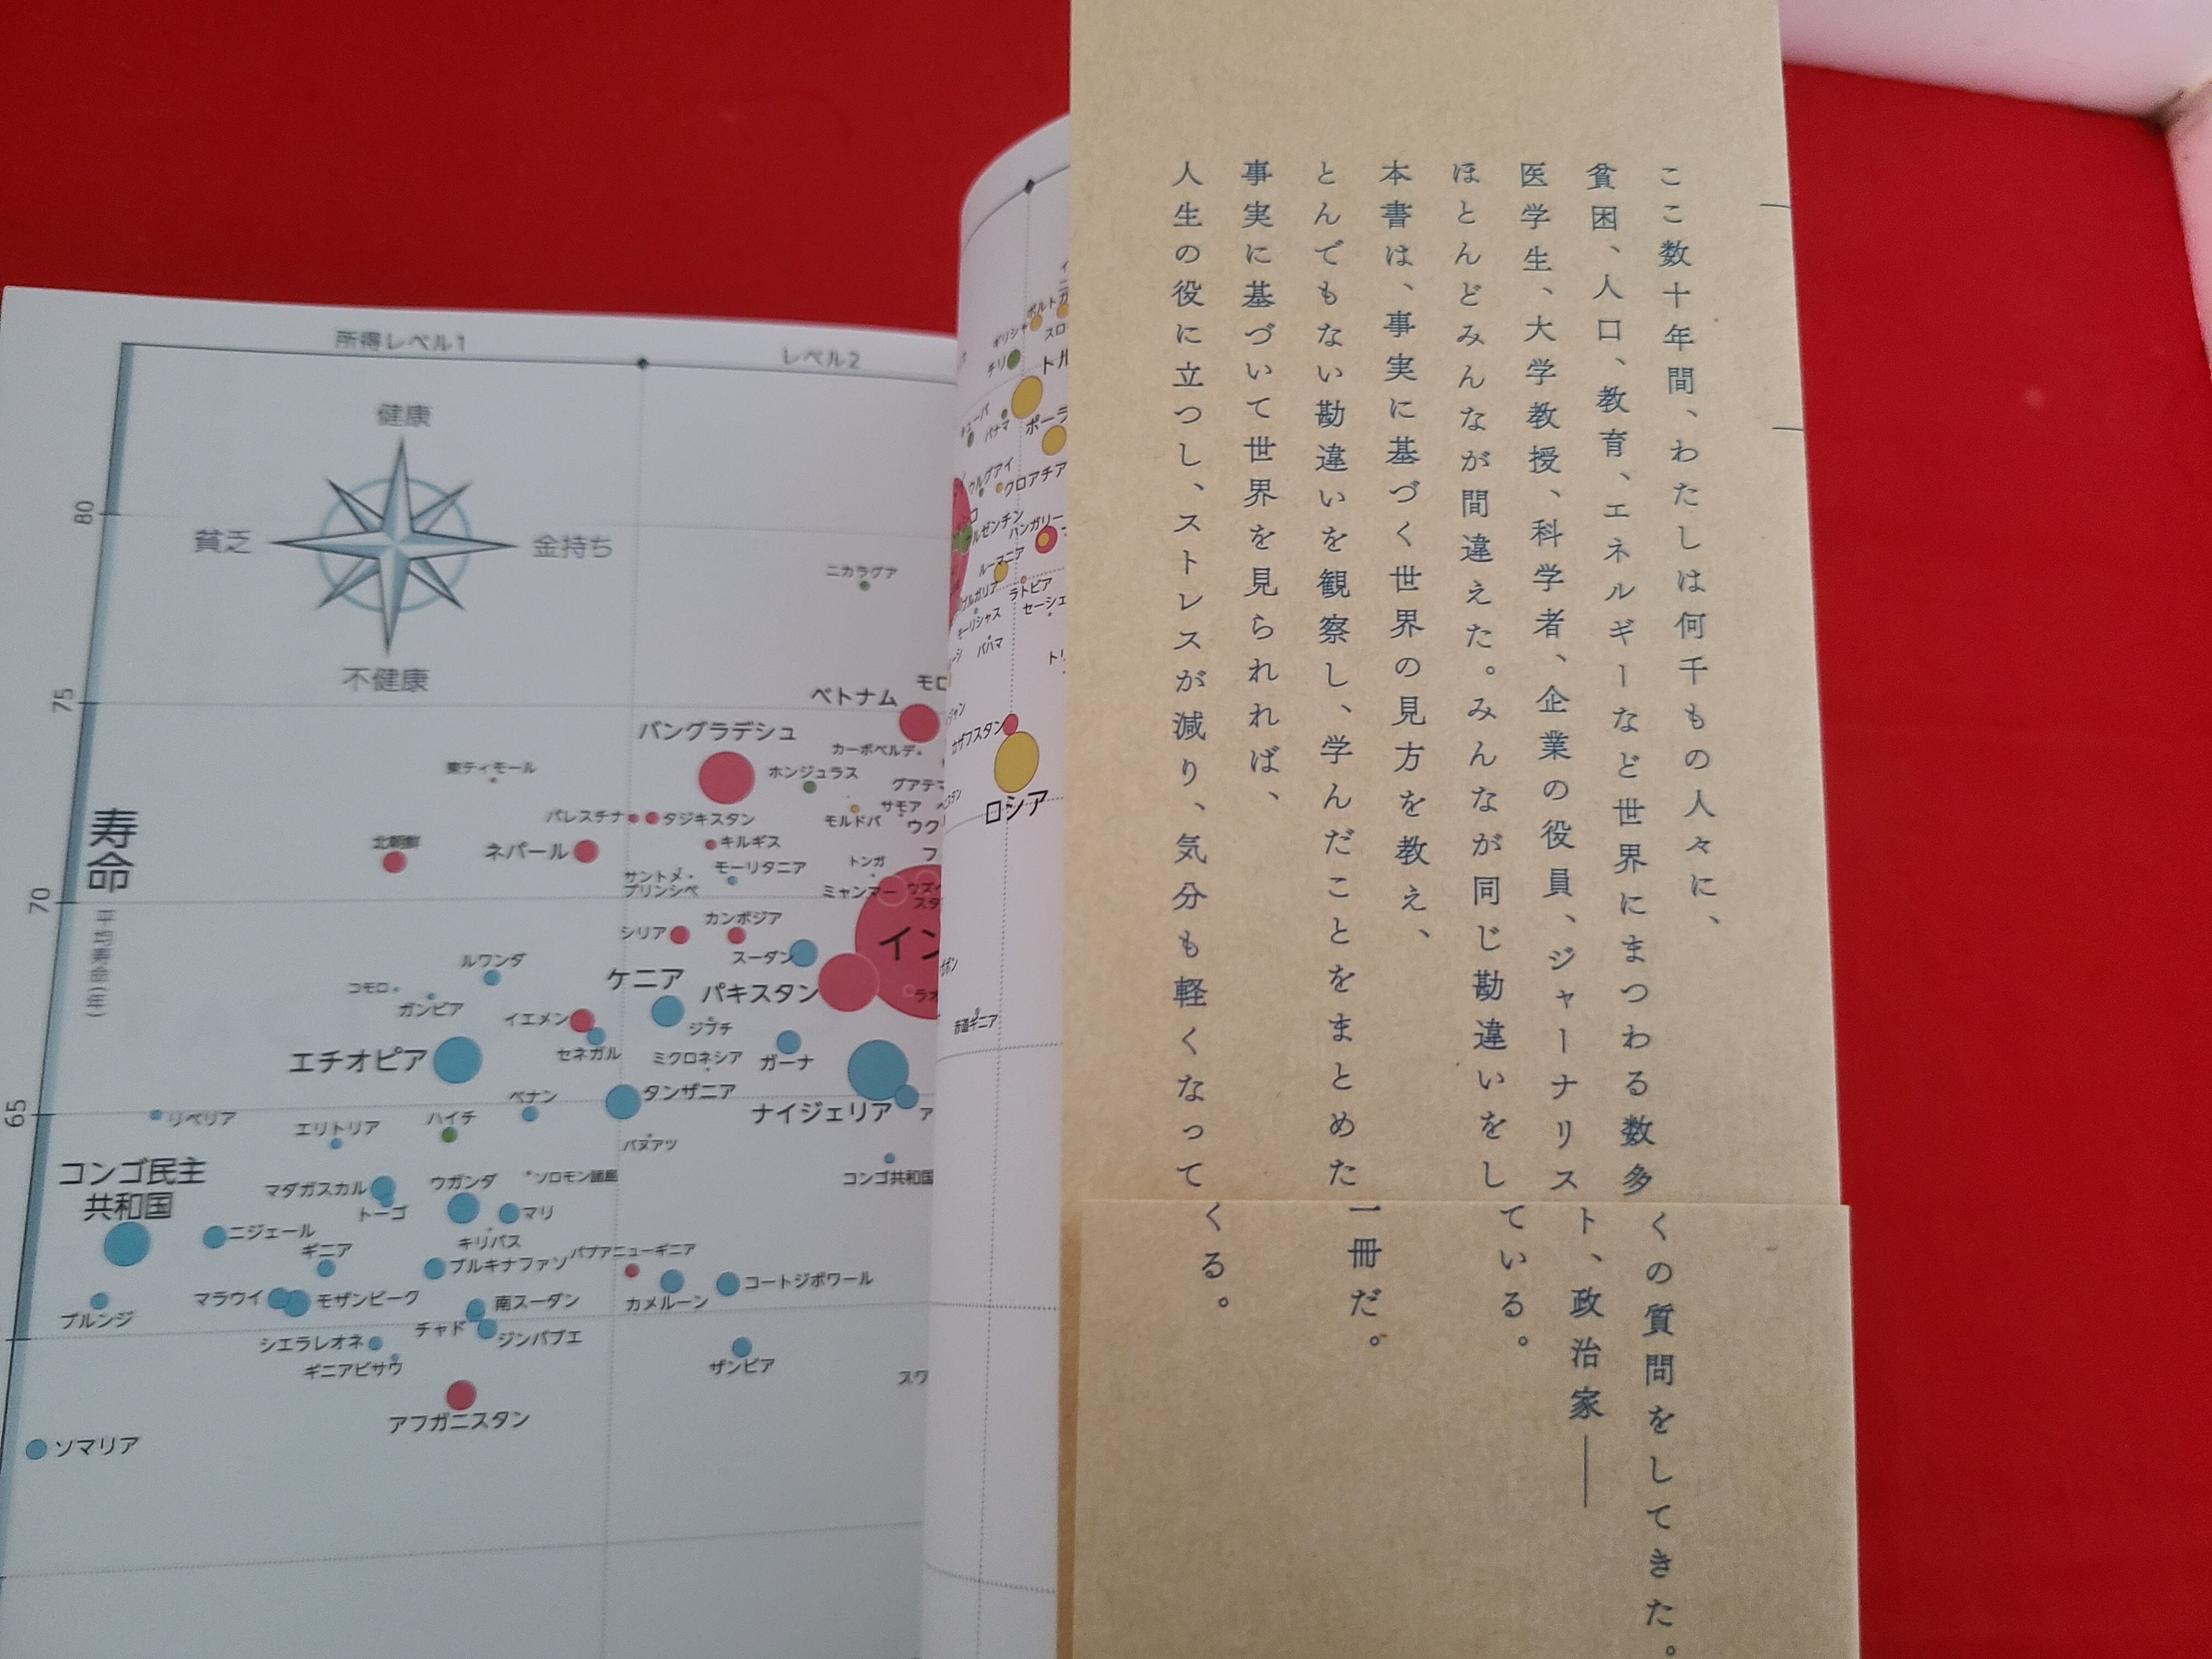 ここ数十年間、わたしは何千もの人々に、
貧困、人口、教育、エネルギーなど世界にまつわる数多くの質問をしてきた。
医学生、大学教授、科学者、企業の役員、ジャーナリスト、政治家――
ほとんどみんなが間違えた。みんなが同じ勘違いをしている。
本書は、事実に基づく世界の見方を教え、
とんでもない勘違いを観察し、学んだことをまとめた一冊だ。
事実に基づいて世界を見られれば、
人生の役に立つし、ストレスが減り、気分も軽くなってくる。
所得レベル1
レベル2
健康
貧乏
金持ち
不健康
80
75
70
65
寿命
平均寿命(年)
ニカラグア
ベトナム
モロ
バングラデシュ
カーボベルデ
東ティモール
ホンジュラス
グアテマ
パレスチナ
タジキスタン
モルドバ
サモア
ウク
北朝鮮
ネパール
キルギス
サントメ・
プリンシペ
モーリタニア
トンガ
フ
ミャンマー
ウズベ
スタ
シリア
カンボジア
スーダン
イン
ルワンダ
ケニア
パキスタン
ラオ
コモロ
ガンビア
イエメン
ジブチ
セネガル
ミクロネシア
ガーナ
エチオピア
ベナン
タンザニア
ナイジェリア
ア
リベリア
エリトリア
ハイチ
バヌアツ
コンゴ民主
共和国
マダガスカル
ウガンダ
ソロモン諸島
コンゴ共和国
トーゴ
マリ
ニジェール
ギニア
キリバス
ブルキナファソ
パプアニューギニア
コートジボワール
カメルーン
ブルンジ
マラウイ
モザンビーク
南スーダン
チャド
ジンバブエ
シエラレオネ
ギニアビサウ
ザンビア
スワ
アフガニスタン
ソマリア
ポルトガ
ギリシャ
スロ
チリ
トル
キューバ
パナマ
ポーラ
ウルグアイ
クロアチア
ルゼンチン
ハンガリー
ルーマニア
ブルガリア
ラトビア
セーシェ
モーリシャス
バハマ
トリ
カザフスタン
ロシア
赤道ギニア